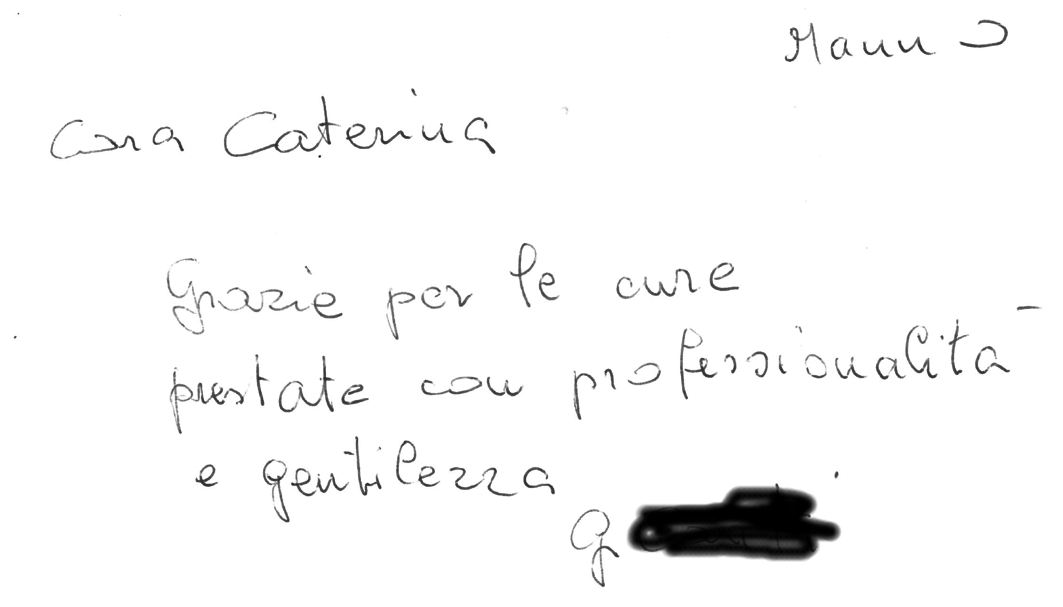 Cara Caterina
Grazie per le cure
prestate con professionalità
e gentilezza
G